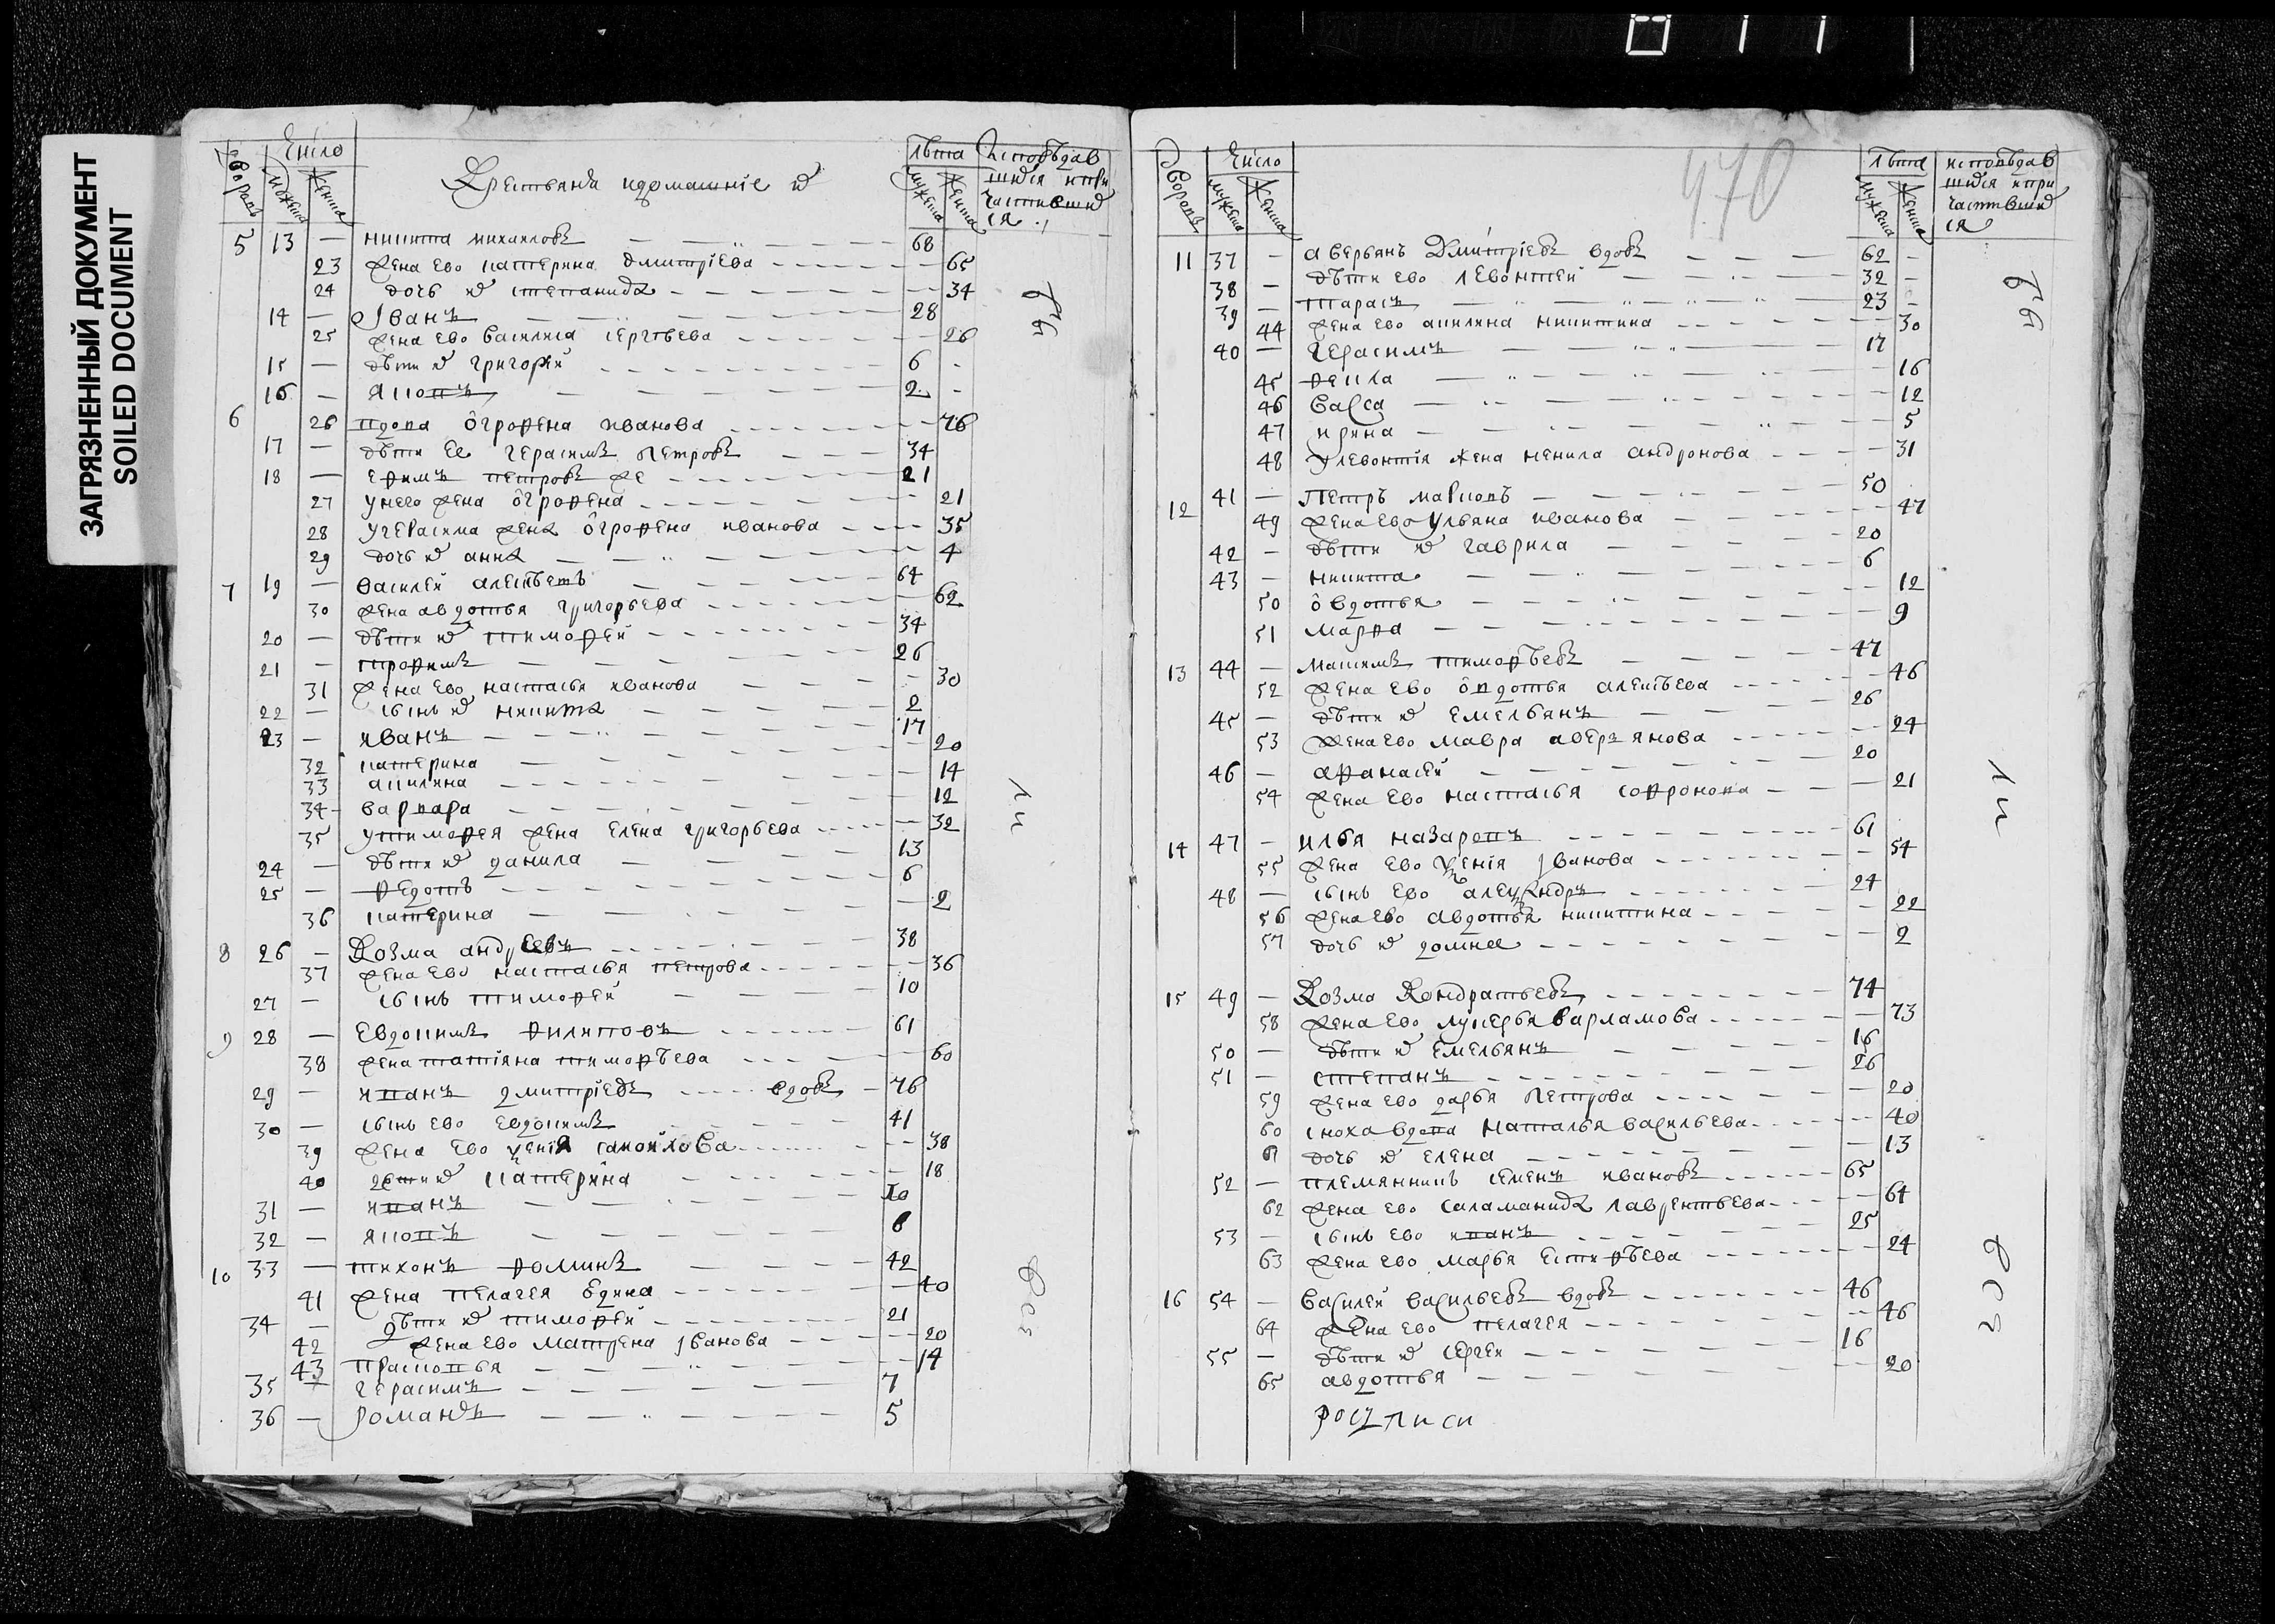 ЗАГРЯЗНЕННЫЙ ДОКУМЕНТ
SOILED DOCUMENT
811
дворовъ Число мужеска женска Крестьяня идомашніе их лѣта мужеска женска исповѣдав
шихся ипри
частивших
ся
5 13 — никита михаиловъ 68
23 жена ево катерина дмитріева 65
24 дочь их степанида 34
14 — Iванъ 28
25 жена ево василиса сергѣева 26
15 — дѣти их григореи 6
16 — яковъ 2
6 26 вдова огрофена иванова 76
17 — дѣти ее герасимъ петровъ 34
18 — ефимъ петровъ же 21
27 унего жена огрофена 21
28 угерасима жена огрофена иванова 35
29 дочь их анна 4
7 19 — василеи алексѣевъ 64
30 жена авдотья григорьева 62
20 — дѣти их тимофеи 34
21 — трофимъ 26
31 жена ево настасья иванова 30
22 — сынъ их никита 2
23 — иванъ 17
32 катерина 20
33 акилина 14
34 варвара 12
35 утимофея жена елена григорьева 32
24 — дѣти их данила 13
25 — федотъ 6
36 катерина 2
8 26 — Козма андреевъ 38
37 жена ево настасья петрова 36
27 — сынъ тимофеи 10
9 28 — Евдокимъ филиповъ 61
38 жена татіяна тимофѣева 60
29 — иванъ дмитріевъ вдовъ 76
30 — сынъ ево евдокимъ 41
39 жена ево ѯенія самоилова 38
40 дѣти их катерина 18
31 — иванъ 10
32 — яковъ 8
10 33 — тихонъ фоминъ 42
41 жена пелагея 40
34 — дѣти их тимофеи 21
42 жена ево матрена iванова 20
43 прасковья 14
35 — герасимъ 7
36 — романъ 5
470
дворовъ Число мужеска женска лѣта мужеска женска исповѣдав
шихся ипри
частивших
ся
11 37 — аверьянъ Дмитріевъ вдовъ 62 -
38 — дѣти ево левонтеи 32 -
39 — тарасъ 23 -
44 жена ево акилина никитина 30
40 — герасимъ 17
45 фекла 16
46 васса 12
47 ирина 5
48 улевонтія жена ненила андронова 31
12 41 — Петръ марковъ 50
49 жена ево ульяна иванова 47
42 — дѣти их гаврила 20
43 — никита 6
50 овдотья 12
51 марфа 9
13 44 — Максимъ тимофѣевъ 47
52 жена ево овдотья алексѣева 46
45 — дѣти их емельянъ 26
53 жена ево мавра аверьянова 24
46 — афанасеи 20
54 жена ево настасья софронова 21
14 47 — илья назаровъ 61
55 жена ево ѯенія iванова 54
48 — сынъ ево алеѯандръ 24
56 жена ево авдотья никитина 22
57 дочь их домна 2
15 49 — Козма Кондратьевъ 74
58 жена ево лукерья варламова 73
50 — дѣти их емельянъ 16
51 — степанъ 26
59 жена ево дарья петрова 20
60 сноха вдова наталья васильева 40
61 дочь их елена 13
52 — племянникъ семенъ ивановъ 65
62 жена ево саламанида лаврентьева 64
53 — сынъ ево иванъ 25
63 жена ево марья естифѣева 24
16 54 — василеи васильевъ вдовъ 46
64 жена ево пелагея 46
55 — дѣти их сергеи 16
65 авдотья 20